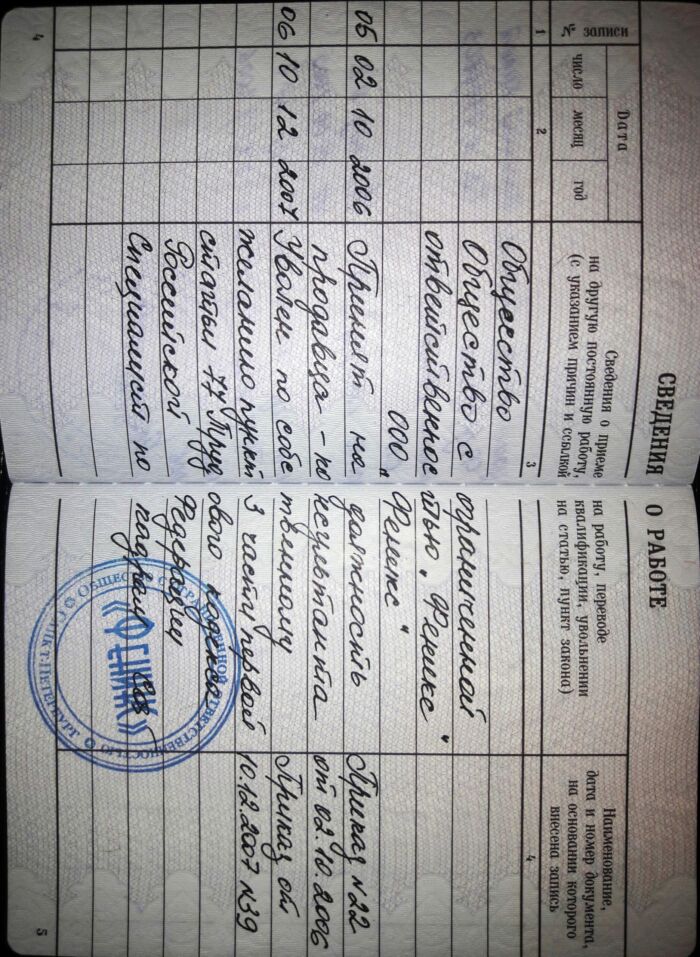 СВЕДЕНИЯ О РАБОТЕ
№ записи
Дата
число месяц год
Сведения о приеме на работу, переводе
на другую постоянную работу, квалификации, увольнении
(с указанием причин и ссылкой на статью, пункт закона)
Наименование,
дата и номер документа,
на основании которого
внесена запись
1 2 3 4
Общество
Общество с ограниченной
ответственностью „Феникс"
ООО „Феникс"
05 02 10 2006 Принят на должность Приказ N22
продавца - консультанта от 02.10.2006
06 10 12 2007 Уволен по собственному Приказ от
желанию пункт 3 части первой 10.12.2007 N39
статьи 77 Трудового кодекса
Российской Федерации
Специалист по кадрам
ОБЩЕСТВО С ОГРАНИЧЕННОЙ ОТВЕТСТВЕННОСТЬЮ
САНКТ-ПЕТЕРБУРГ
«ФЕНИКС»
4 5